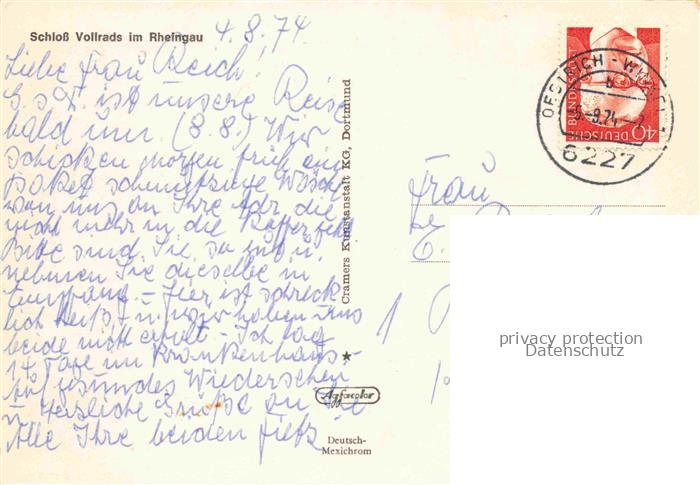 Schloß Vollrads im Rheingau 4.8.74
Liebe Frau Reich!
ist unsere Reise
bald um. (8.8.) Wir
schicken morgen früh ein
Paket schmutzige Wäsche
von uns an Ihre Adr. die
nicht mehr in die Koffer geht.
Bitte sind Sie so gut u.
nehmen Sie dieselbe in
Empfang – Hier ist schreck-
lich heiß – u. wir haben uns
beide nicht erholt – Ich lag
14 Tage im Krankenhaus –
Auf gesundes Wiedersehen
u. Herzliche Grüße an Sie
Alle Ihre beiden
Cramers Kunstanstalt KG, Dortmund
Agfacolor
Deutsch-
Mexichrom
DEUTSCHE
BUNDESPOST
40
OESTRICH-WINKEL
6227
Frau
1
privacy protection
Datenschutz